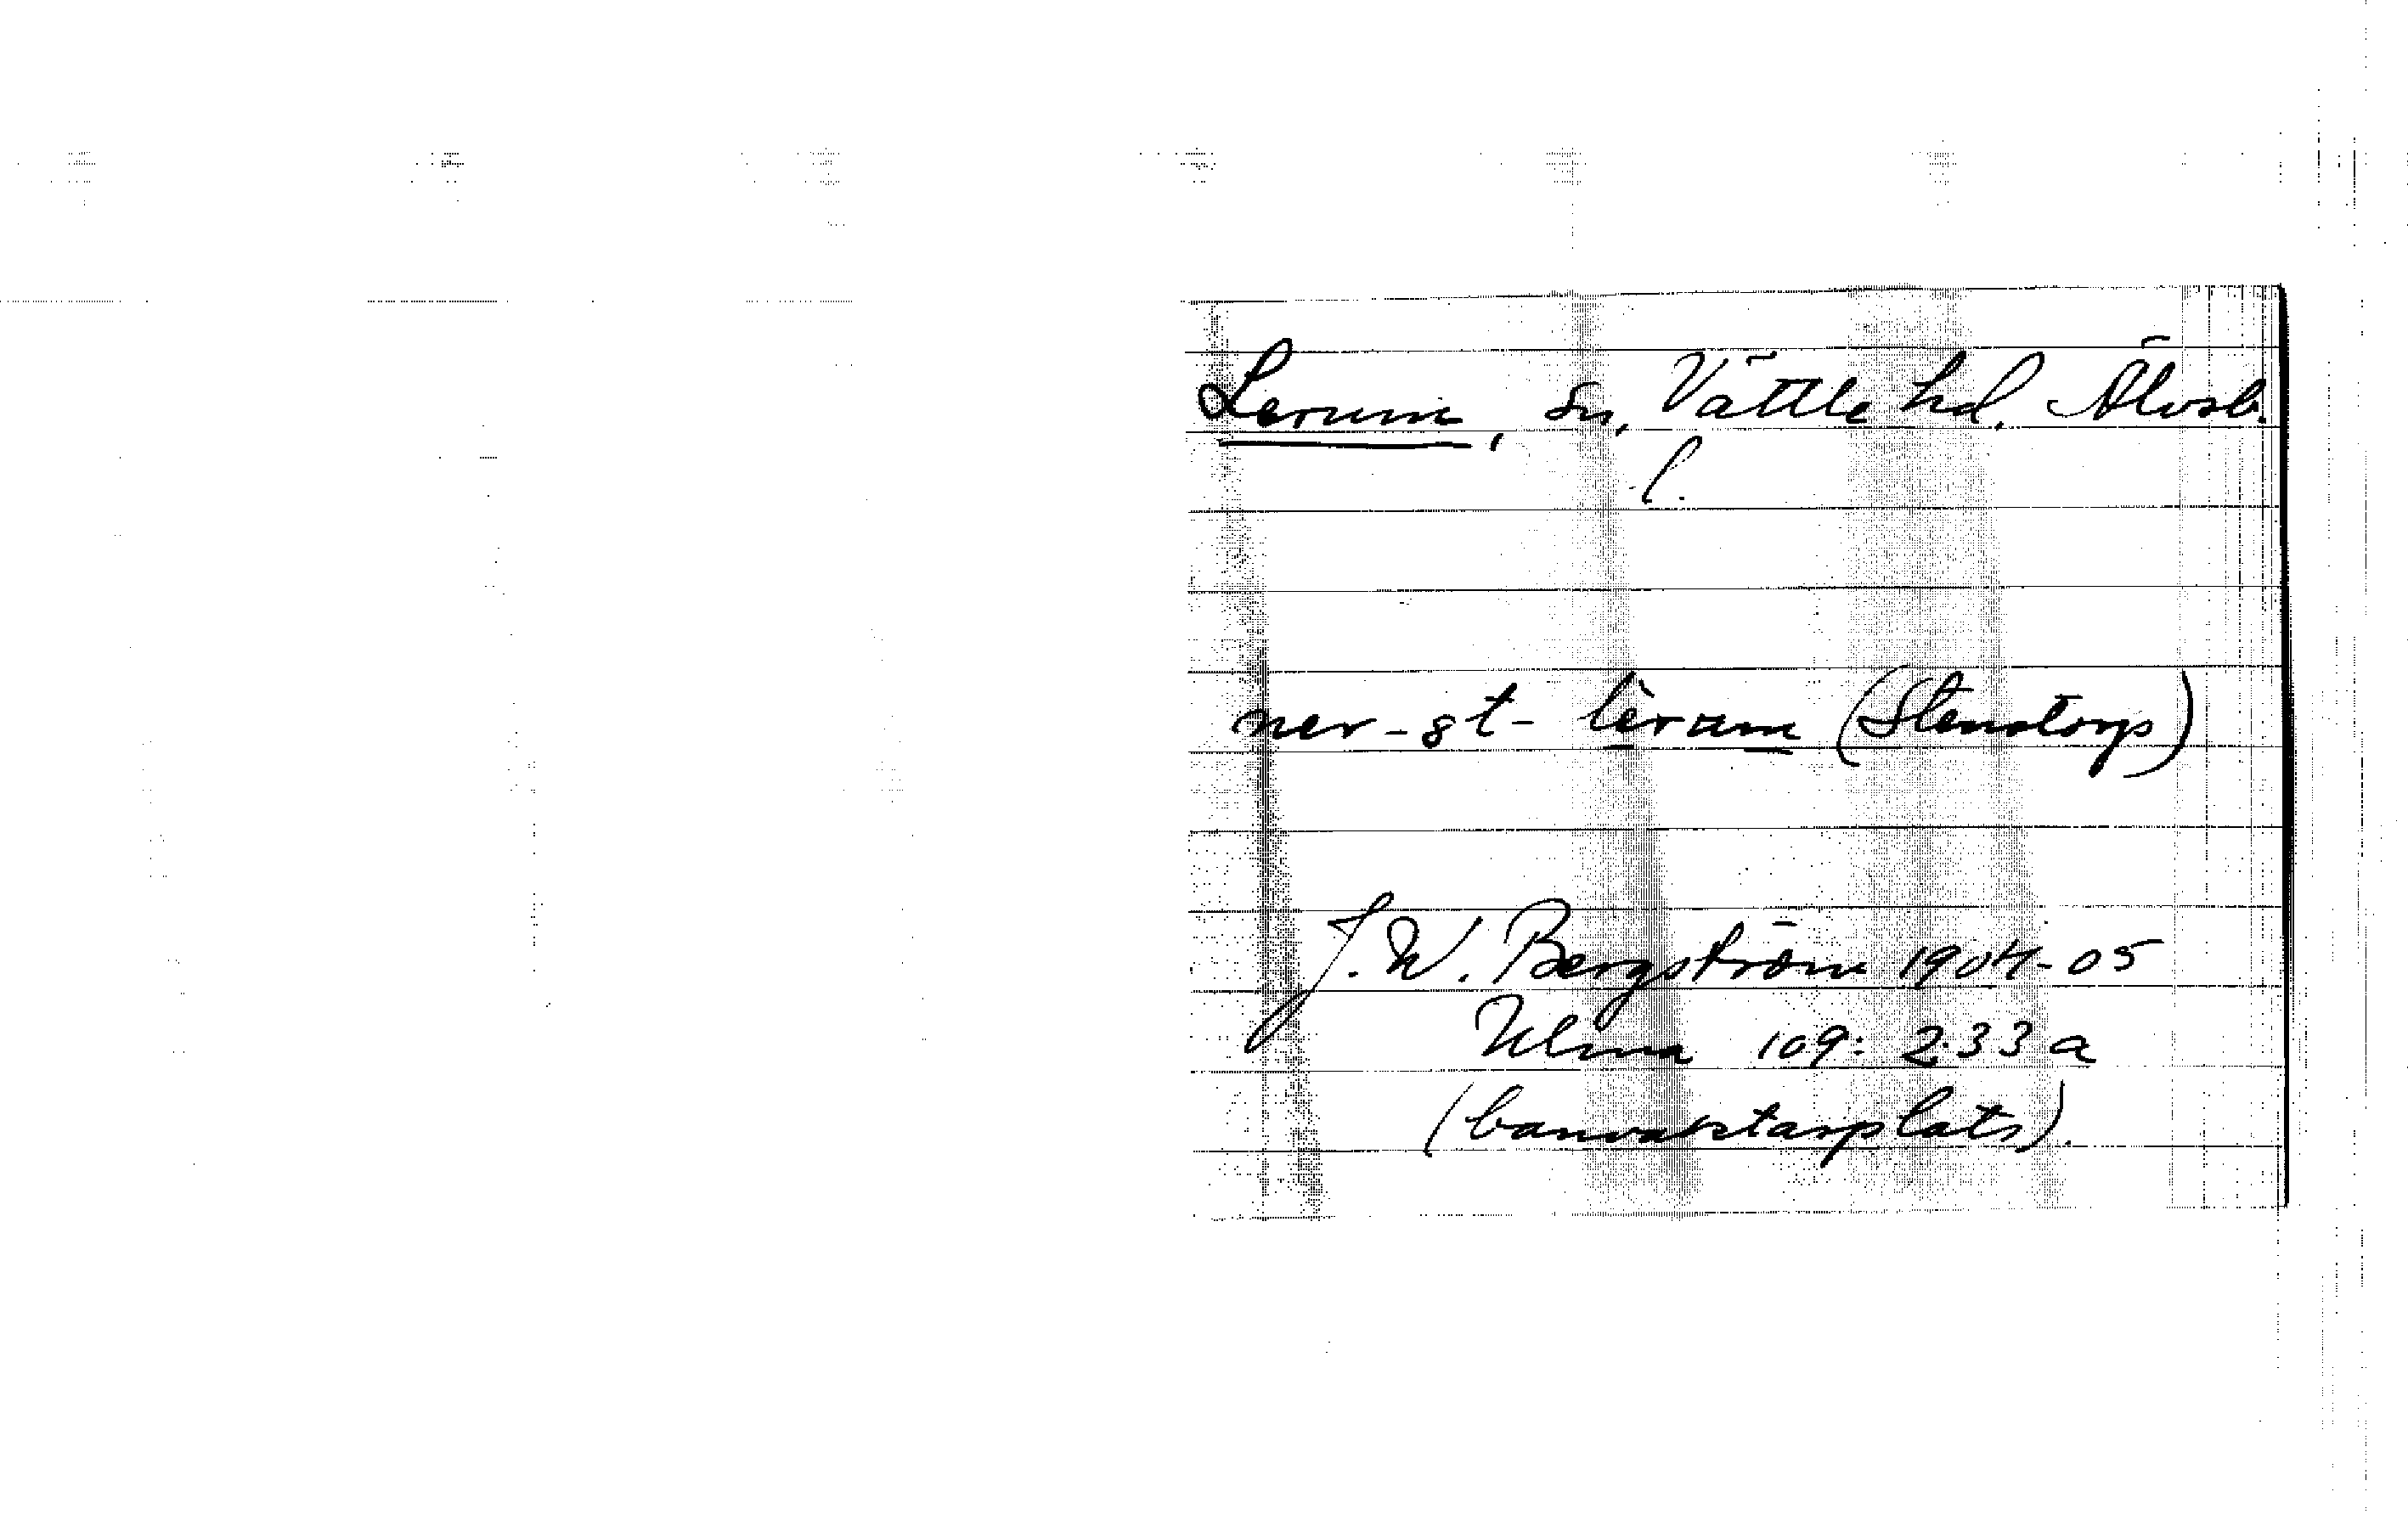 Lerum, sn, Vättle hd, Älvsb.
l.
ner-gt- lèrum (Stenstorp)
J. W. Bergström 1904-05
Ulma 109: 233 a
(banvaktarplats).